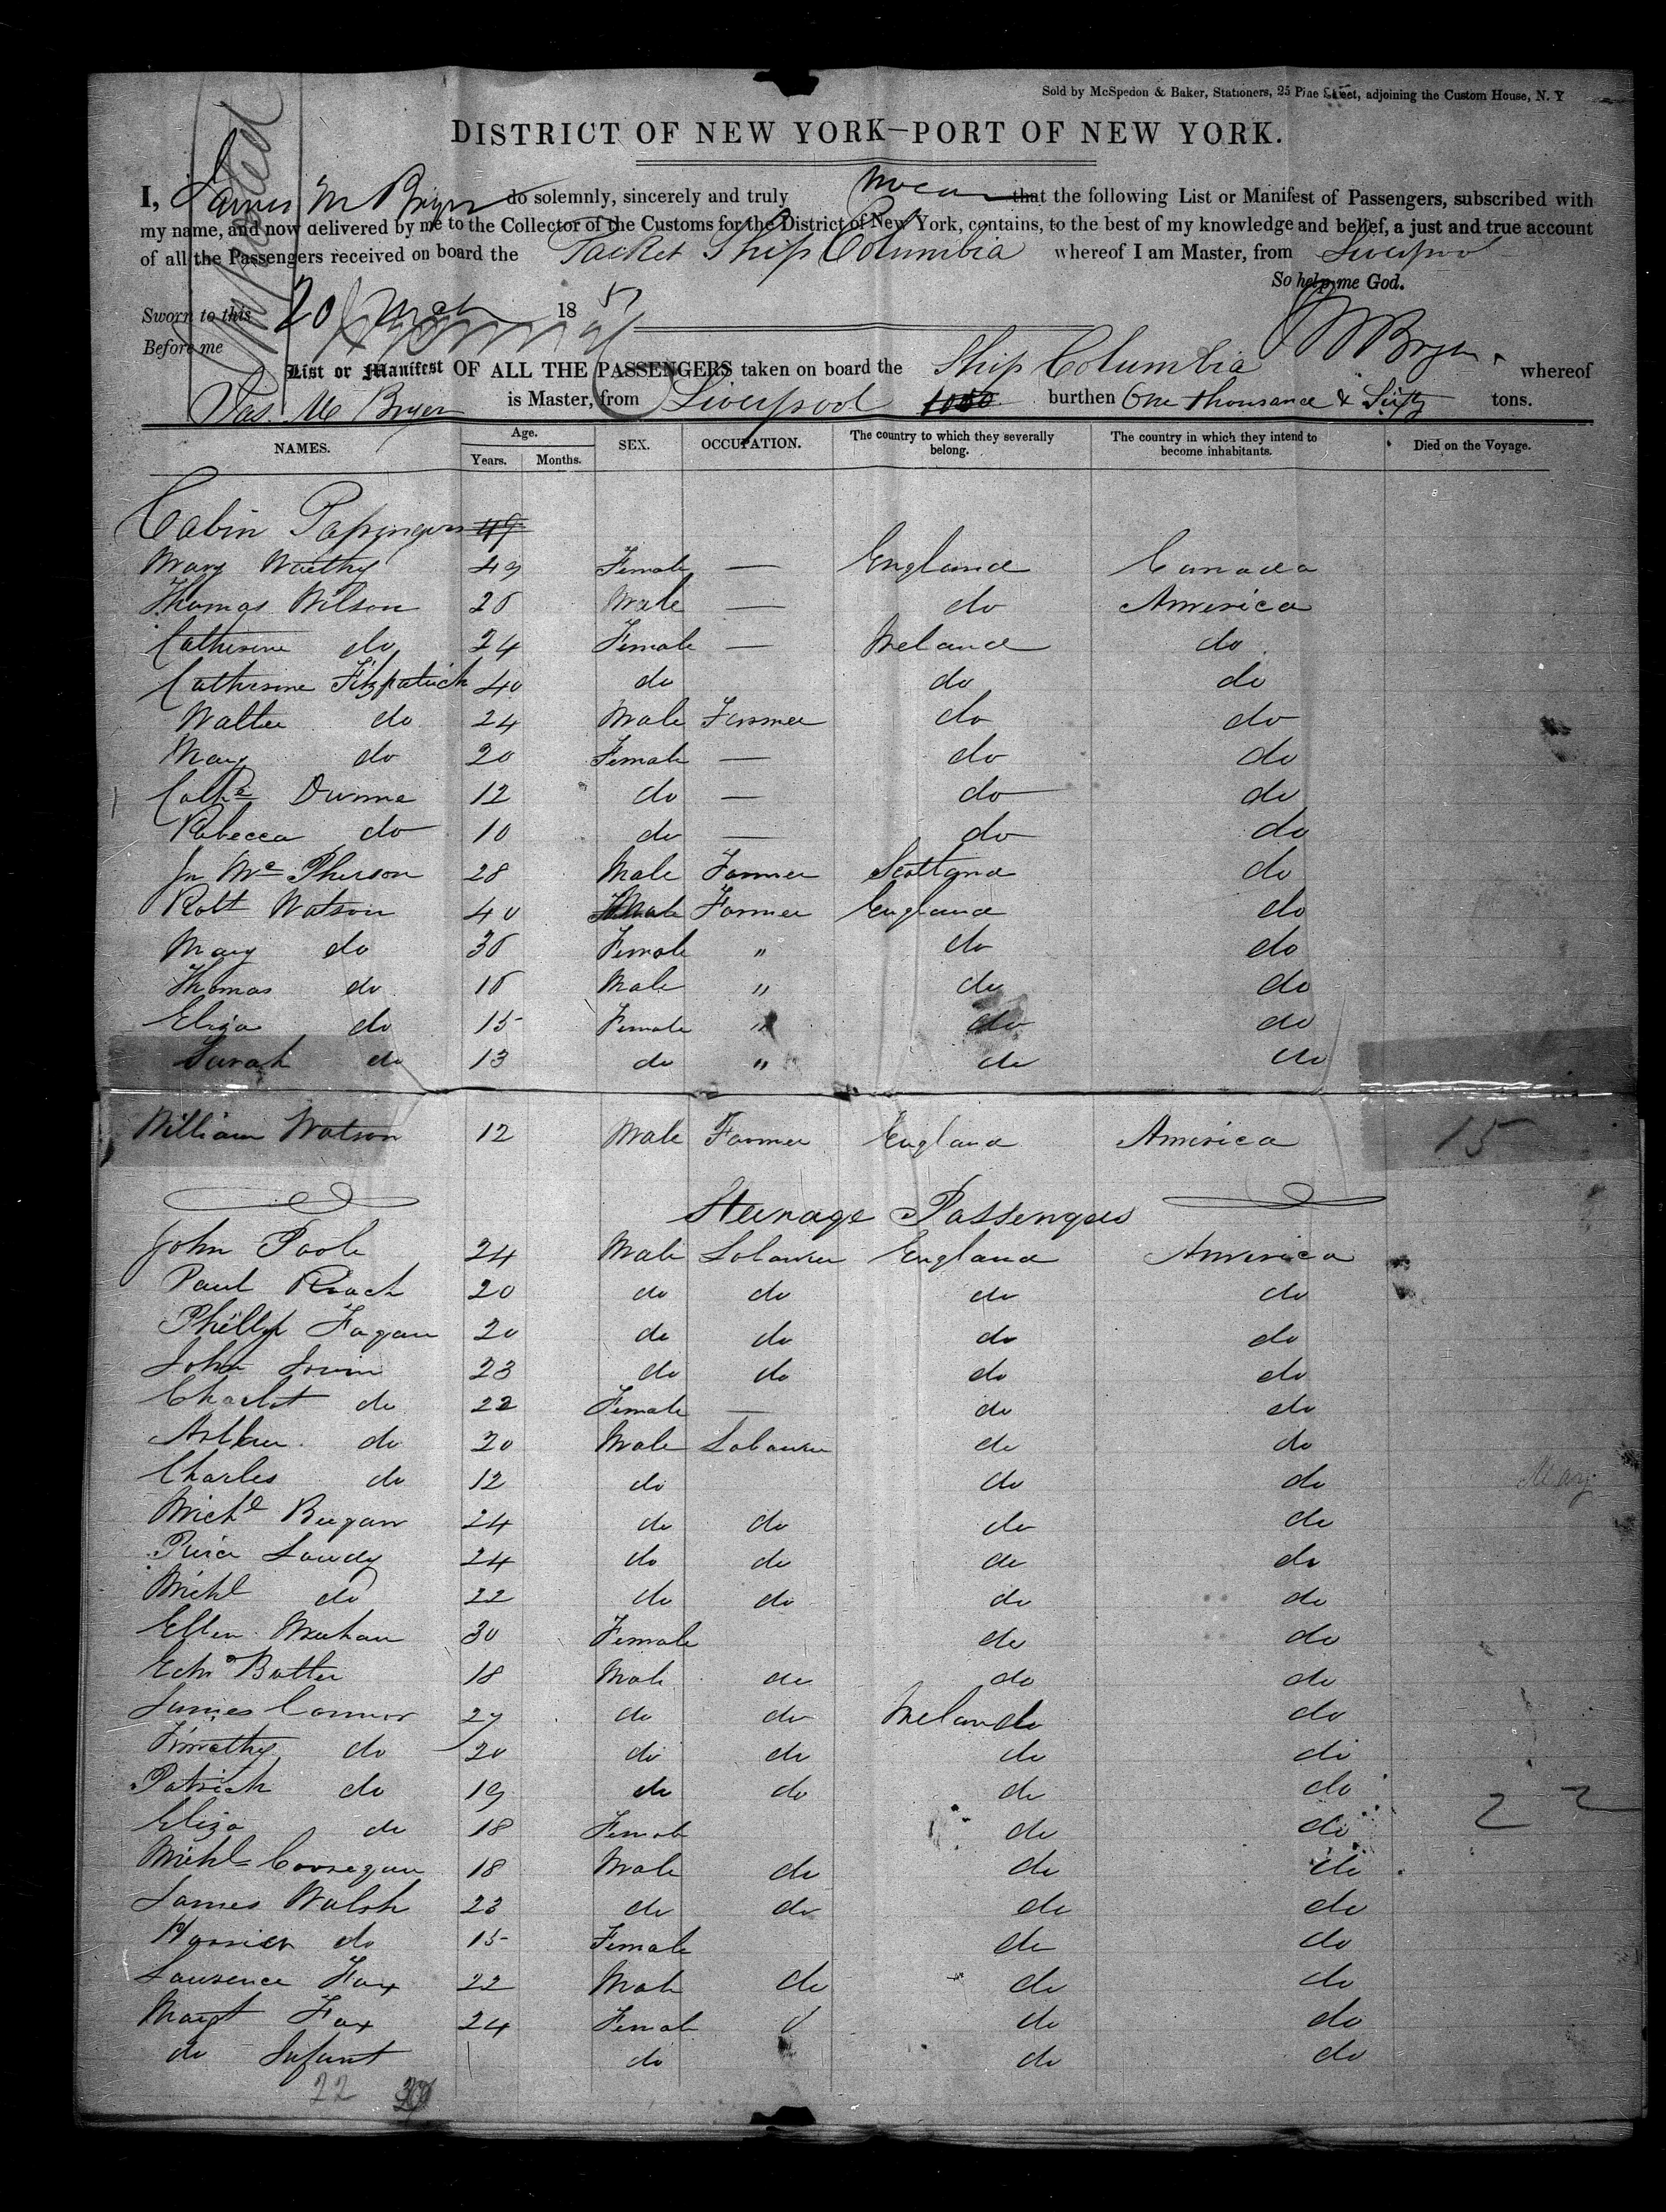 Sold by McSpedon & Baker, Stationers, 25 Pine Street, adjoining the Custom House, N. Y
DISTRICT OF NEW YORK—PORT OF NEW YORK.
I, James M Bryer do solemnly, sincerely and truly swear that the following List or Manifest of Passengers, subscribed with
my name, and now delivered by me to the Collector of the Customs for the District of New York, contains, to the best of my knowledge and belief, a just and true account
of all the Passengers received on board the Packet Ship Columbia whereof I am Master, from Liverpool
So help me God.
Sworn to this 20 March 185
Before me
J M Bryer
List or Manifest OF ALL THE PASSENGERS taken on board the Ship Columbia whereof
Jas. M Bryer is Master, from Liverpool 1050 burthen One thousand & Sixty tons.
NAMES. Age. Years. Months. SEX. OCCUPATION. The country to which they severally belong. The country in which they intend to become inhabitants. Died on the Voyage.
Cabin Passengers 49
Mary 49 Female — England Canada
Thomas Wilson 26 Male — do America
Catherine do 24 Female — Ireland do
Catherine Fitzpatrick 40 do do do
Walter do 24 Male Farmer do do
Mary do 20 Female — do do
Cathe Dunne 12 do — do do
Rebecca do 10 do — do do
Jn McPherson 28 Male Farmer Scotland do
Robt Watson 40 Male Farmer England do
Mary do 36 Female " do do
Thomas do 16 Male " do do
Eliza do 15 Female " do do
Sarah do 13 do " do do
William Watson 12 Male Farmer England America 15
Steerage Passengers
John Poole 24 Male Labourer England America
Paul Roach 20 do do do do
Phillip Fagan 20 do do do do
John Irwin 23 do do do do
Charlot do 22 Female — do do
Arthur do 20 Male Labourer do do
Charles do 12 do do do
Michl Regan 24 do do do do
Pierce Landy 24 do do do do
Michl do 22 do do do do
Ellen Meehan 30 Female do do
Edmd Butler 18 Male do do do
James Connor 27 do do Ireland do
Timothy do 20 do do do do
Patrick do 19 do do do do
Eliza do 18 Female do do 22
Michl Corregan 18 Male do do do
James Walsh 23 do do do do
do 15 Female do do
Laurence Fox 22 Male do do do
Margt Fox 24 Female do do
do Infant do do do
22